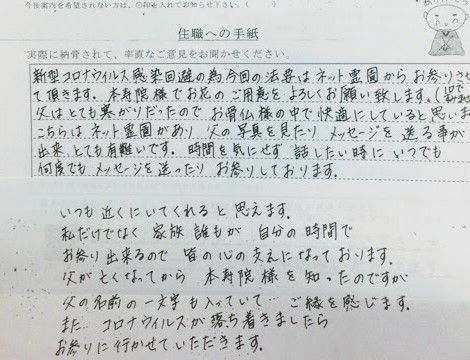 今後案内を希望されない方は、○印を入れてお知らせ下さい。
ありがとう
住職への手紙
実際に納骨されて、率直なご意見をお聞かせください。
新型コロナウイルス感染回避の為今回の法要はネット霊園からお参りさせ
て頂きます。本寿院様でお花のご用意をよろしくお願い致します。
父はとても寒がりだったのでお骨仏様の中で快適にしていると思いま
こちらはネット霊園があり父の写真を見たりメッセージを送る事が
出来とても有難いです。時間を気にせず話したい時にいつでも
何度でもメッセージを送ったりお参りしております。
いつも近くにいてくれると思えます。
私だけでなく家族誰もが自分の時間で
お参り出来るので皆の心の支えになっております。
父が亡くなってから本寿院様を知ったのですが
父の名前の一文字も入っていて…ご縁を感じます。
また…コロナウイルスが落ち着きましたら
お参りに行かせていただきます。